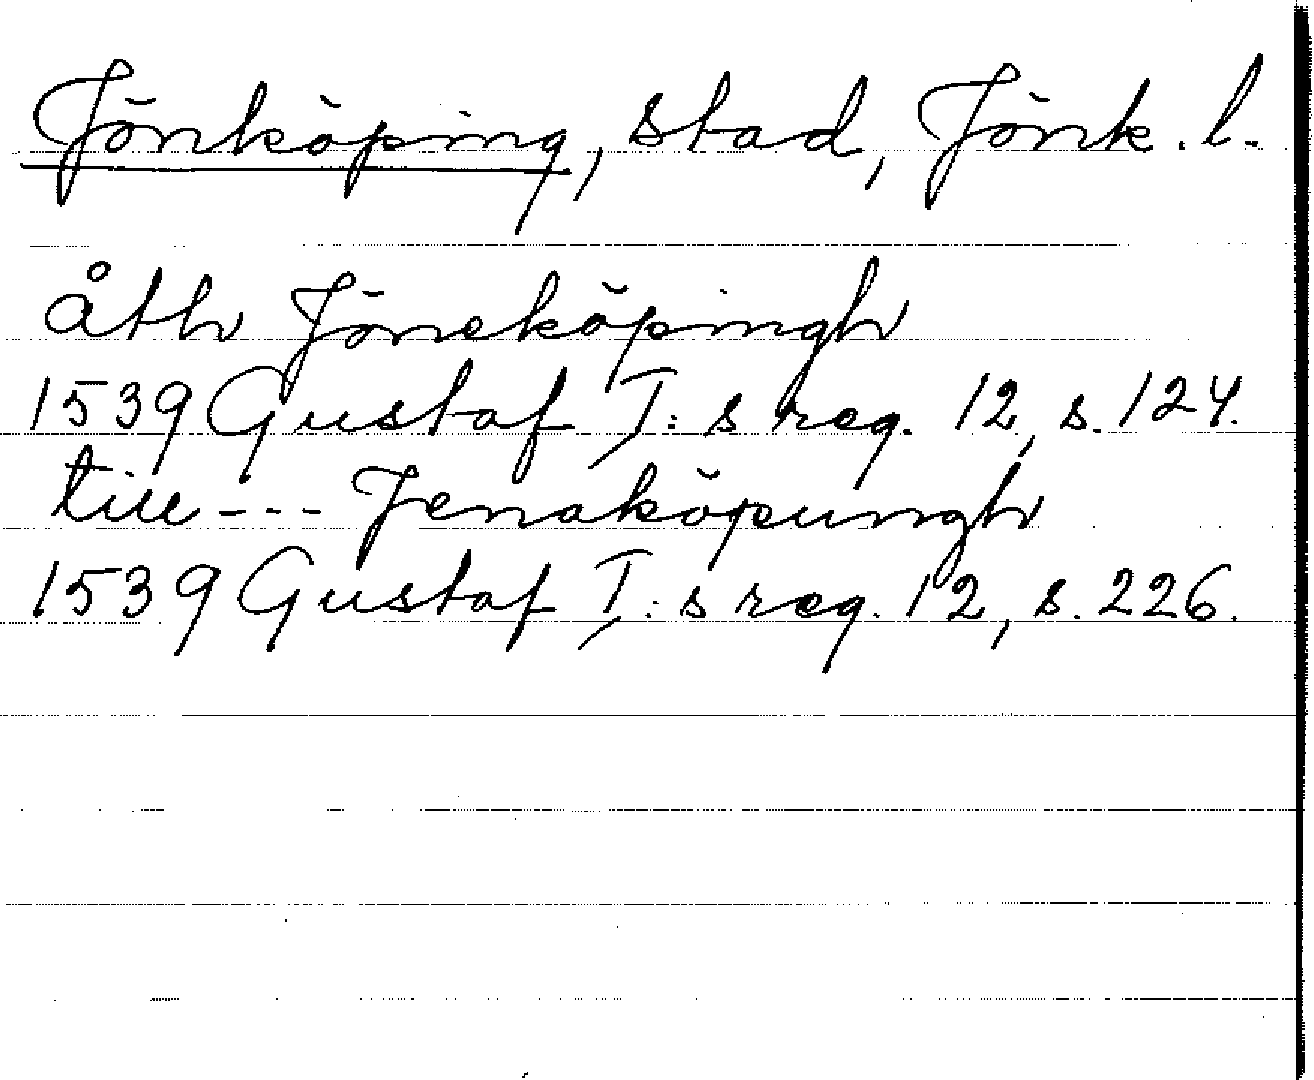 Jönköping, stad, Jönk. l.
åth Jöneköpingh
1539 Gustaf I: s reg. 12, s. 124.
till --- Jenaköpungh
1539 Gustaf I: s reg. 12, s. 226.